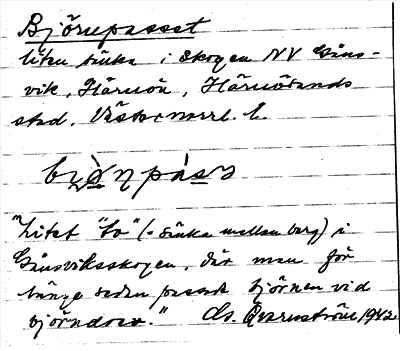 Björnpasset
liten sänka i skogen NV Gåns-
vik, Härnön, Härnösands
stad, Västernorrl. l.
"Litet "to" (= sänka mellan berg) i
Gånsviksskogen, där man för
länge sedan passade björnen vid
björndrev." 1942